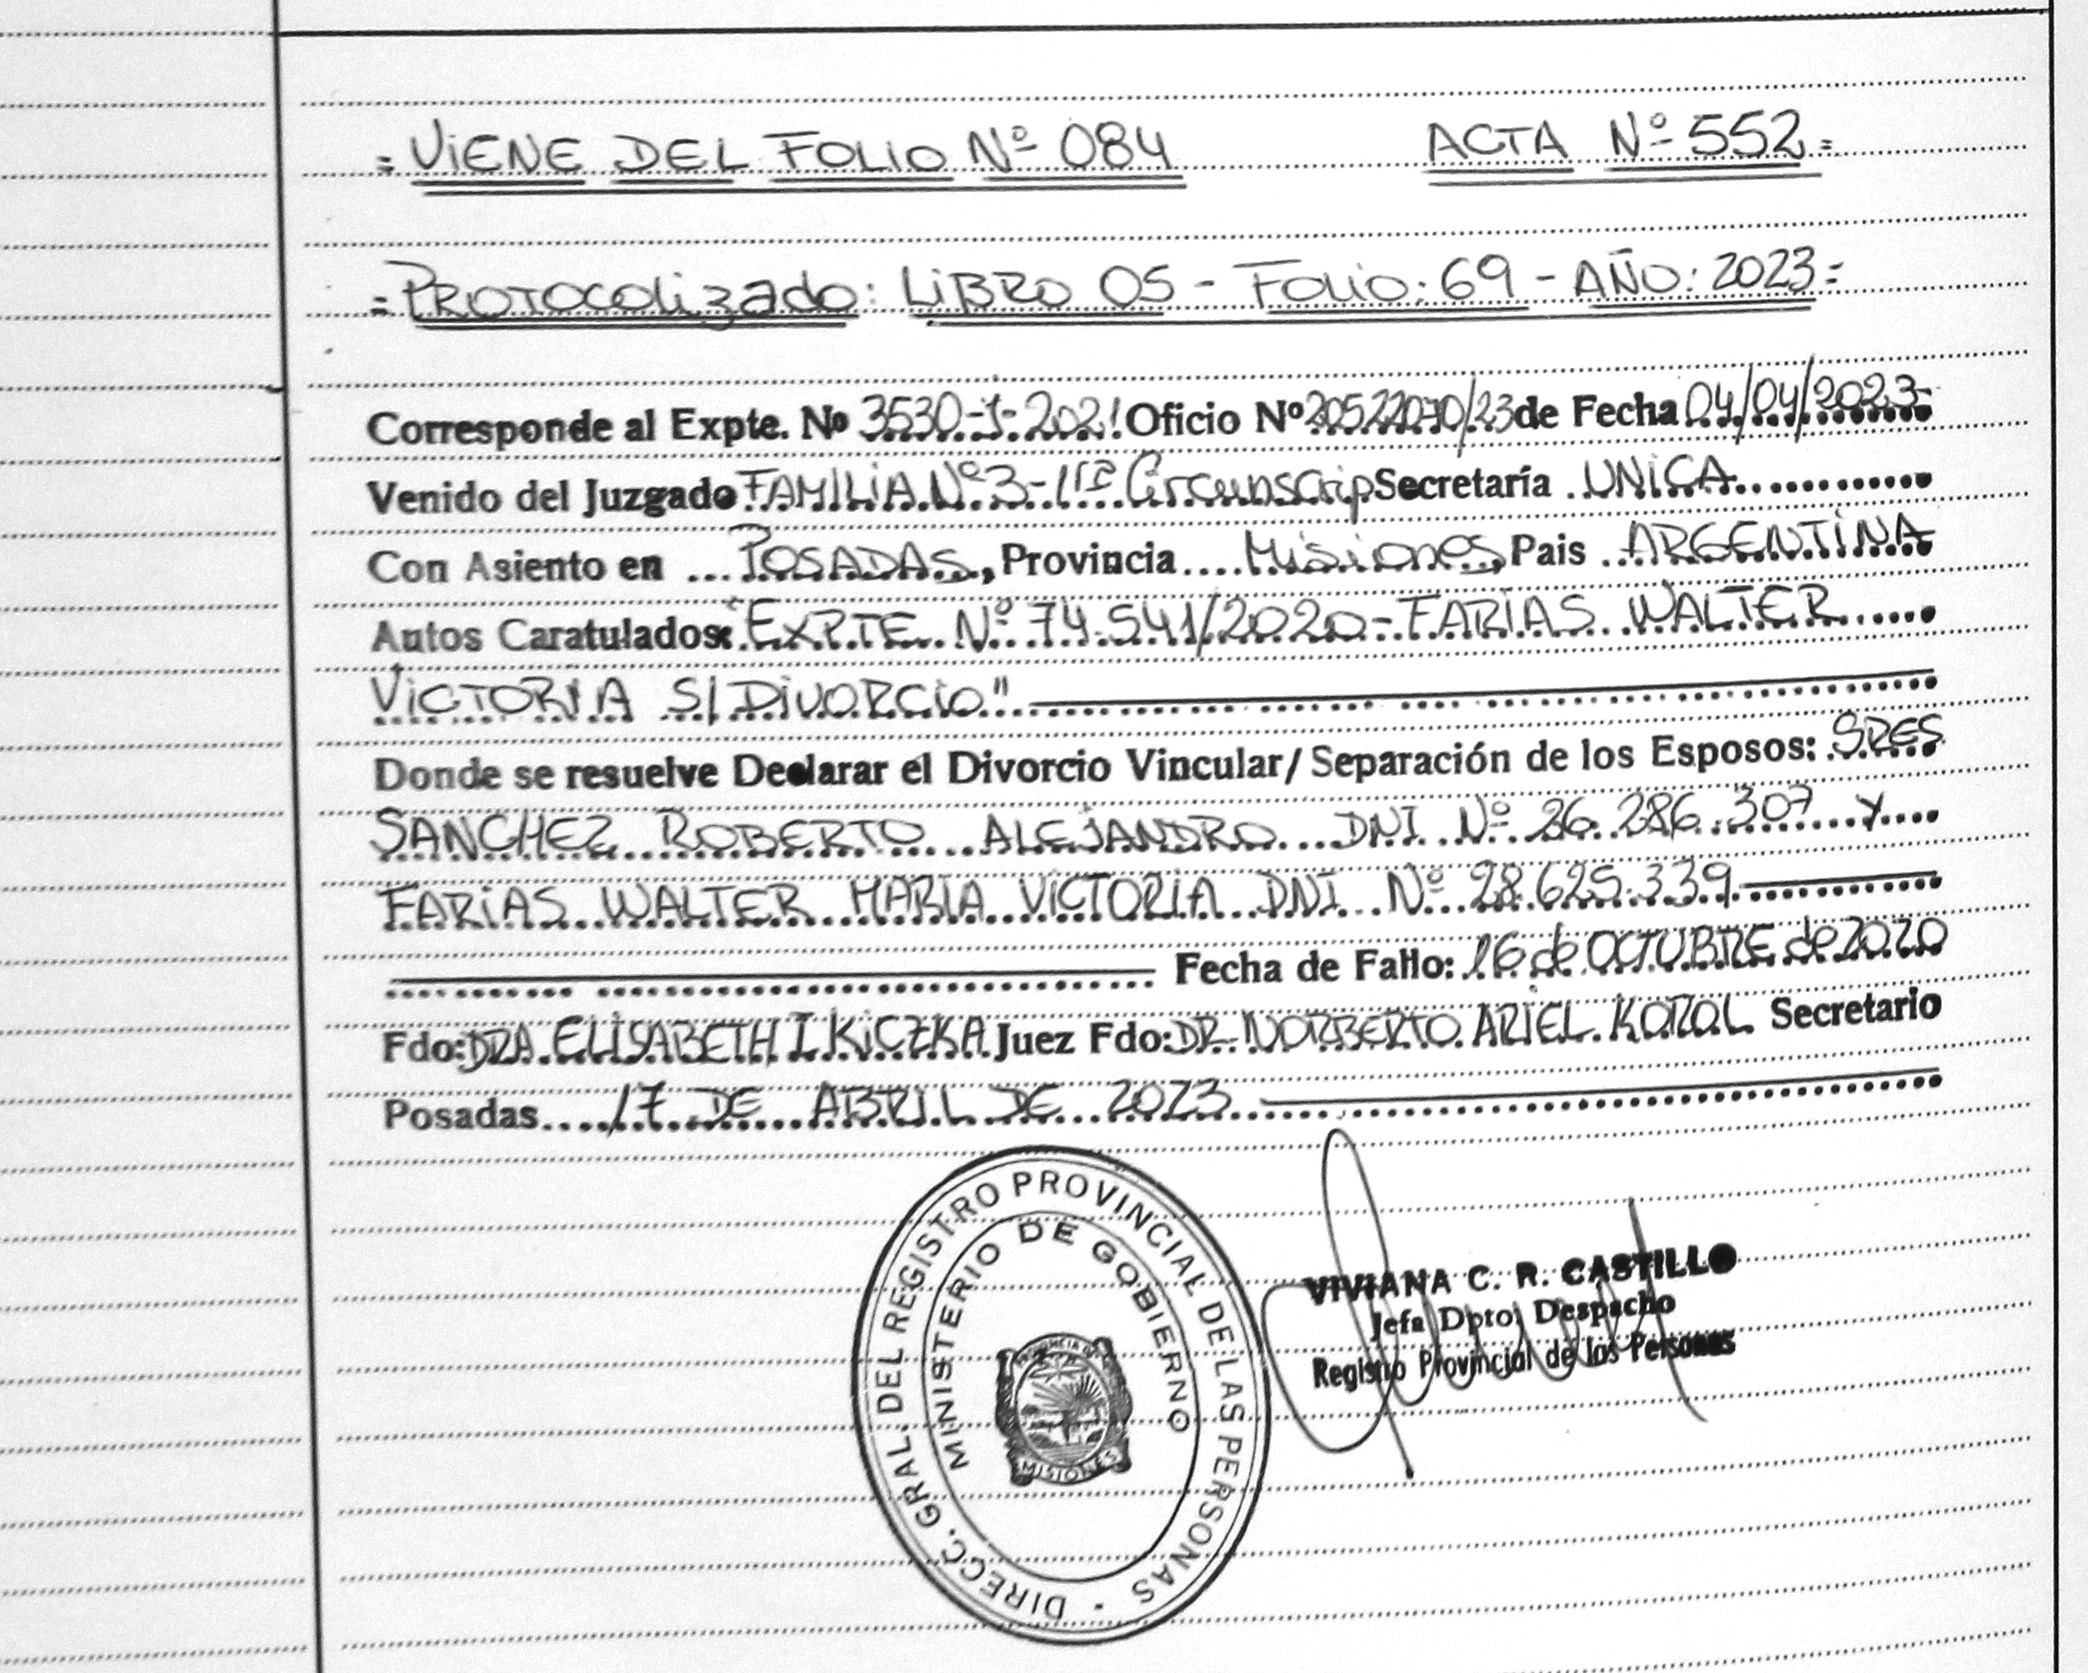 = ViENE DEL FOLIO Nº 084 ACTA Nº 552 =
= PROTOCOLizado: LiBRO 05 - FOLiO: 69 - AÑO: 2023 =
Corresponde al Expte. Nº 3530-1-2021 Oficio Nº 20522070/23 de Fecha 04/04/2023-
Venido del Juzgado FAMiLiA Nº 3- Circunscrip Secretaría UNiCA
Con Asiento en POSADAS, Provincia Misiones, Pais ARGENTiNA
Autos Caratulados: "EXPTE Nº 74.541/2020-FARIAS WALTER
VICTORIA S/DiVORCiO"
Donde se resuelve Declarar el Divorcio Vincular/ Separación de los Esposos: SRES
SANCHEZ ROBERTO ALEJANDRO DNI Nº 26.286.307 y
FARiAS WALTER MARIA VICTORIA DNI Nº 28.625.339
Fecha de Fallo: 16 de OCTUBRE de 2020
Fdo: DRA. ELISABETH I KiCZKA Juez Fdo: DR. NORBERTO ARIEL KOROL Secretario
Posadas 17 DE ABRIL DE 2023
DIRECC. GRAL. DEL REGISTRO PROVINCIAL DE LAS PERSONAS -
MINISTERIO DE GOBIERNO
PROVINCIA DE
MISIONES
VIVIANA C. R. CASTILLO
Jefa Dpto. Despacho
Registro Provincial de las Personas